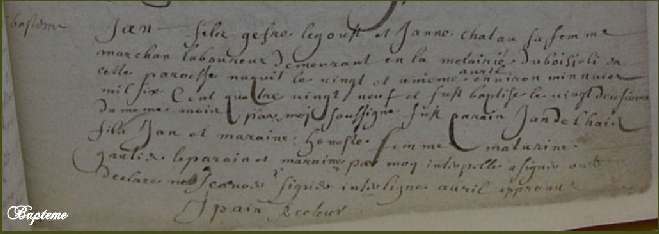 baptesme
Jan filz gefre legoust et Janne chatau sa femme
marchan laboureur demeurant en la metairie duboisioli en
cette paroesse naquit le vingt et unieme avril environ minuict
mil six Cent quatre vingt neuf et fust baptise le vingt deusieme
du mesme mois par moy soussigne fust parain Jan
fils Jan et maraine femme maturine
gautier le parain et maraine par moy interpelle a signer ont
declare ne scavoir signer interligne avril approuve
Jpain Recteur
Bapteme